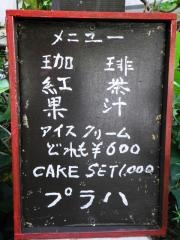 メニュー
珈琲
紅茶
果汁
アイスクリーム
どれも¥600
CAKE SET1,000
プラハ